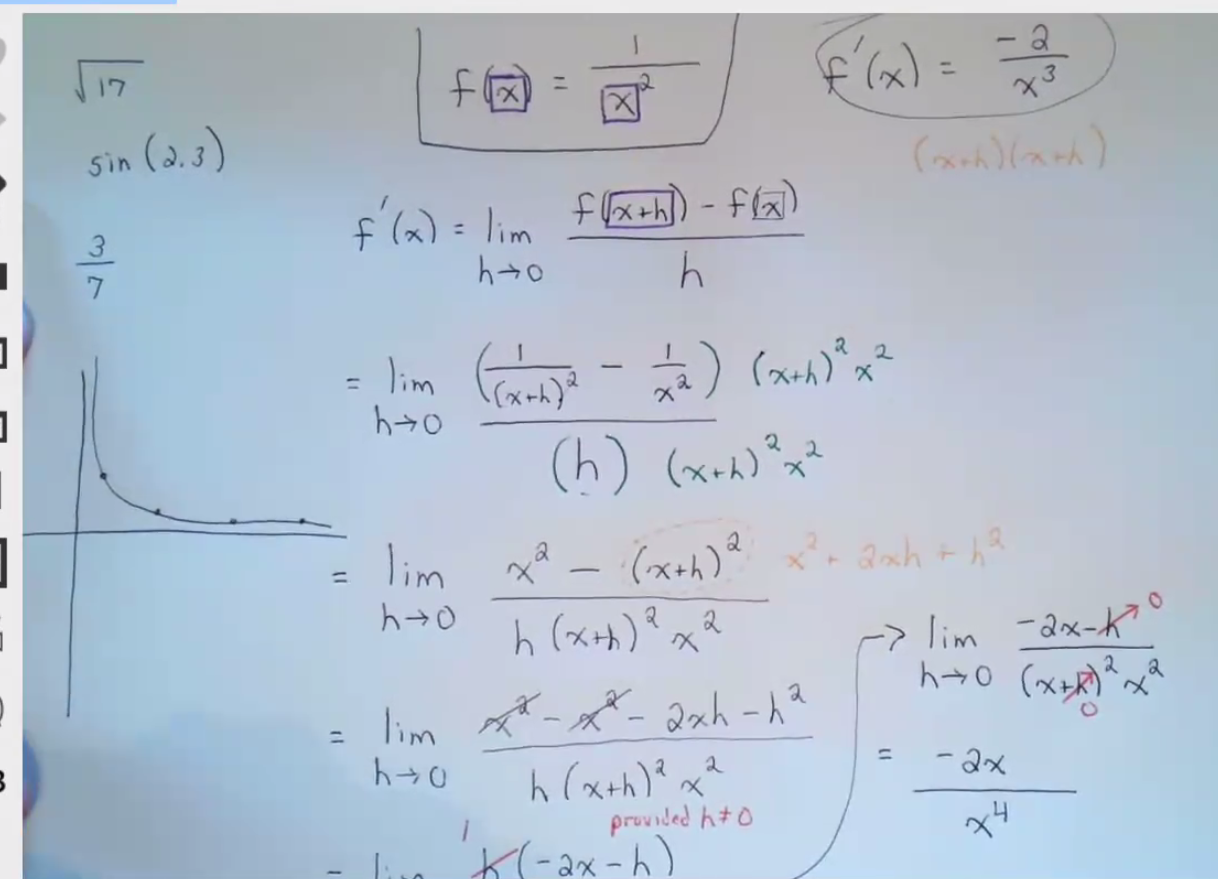 √17
sin (2.3)
3/7
f(x) = 1/x²
f'(x) = -2/x³
(x+h)(x+h)
f'(x) = lim h→0 (f(x+h) - f(x))/h
= lim h→0 ((1/(x+h)² - 1/x²) (x+h)² x²)/((h) (x+h)² x²)
= lim h→0 (x² - (x+h)²)/(h (x+h)² x²)
x² + 2xh + h²
= lim h→0 (x² - x² - 2xh - h²)/(h (x+h)² x²)
provided h≠0
1
= lim h(-2x - h)
→ lim h→0 (-2x - h)/((x+h)² x²)
0
0
= -2x/x⁴